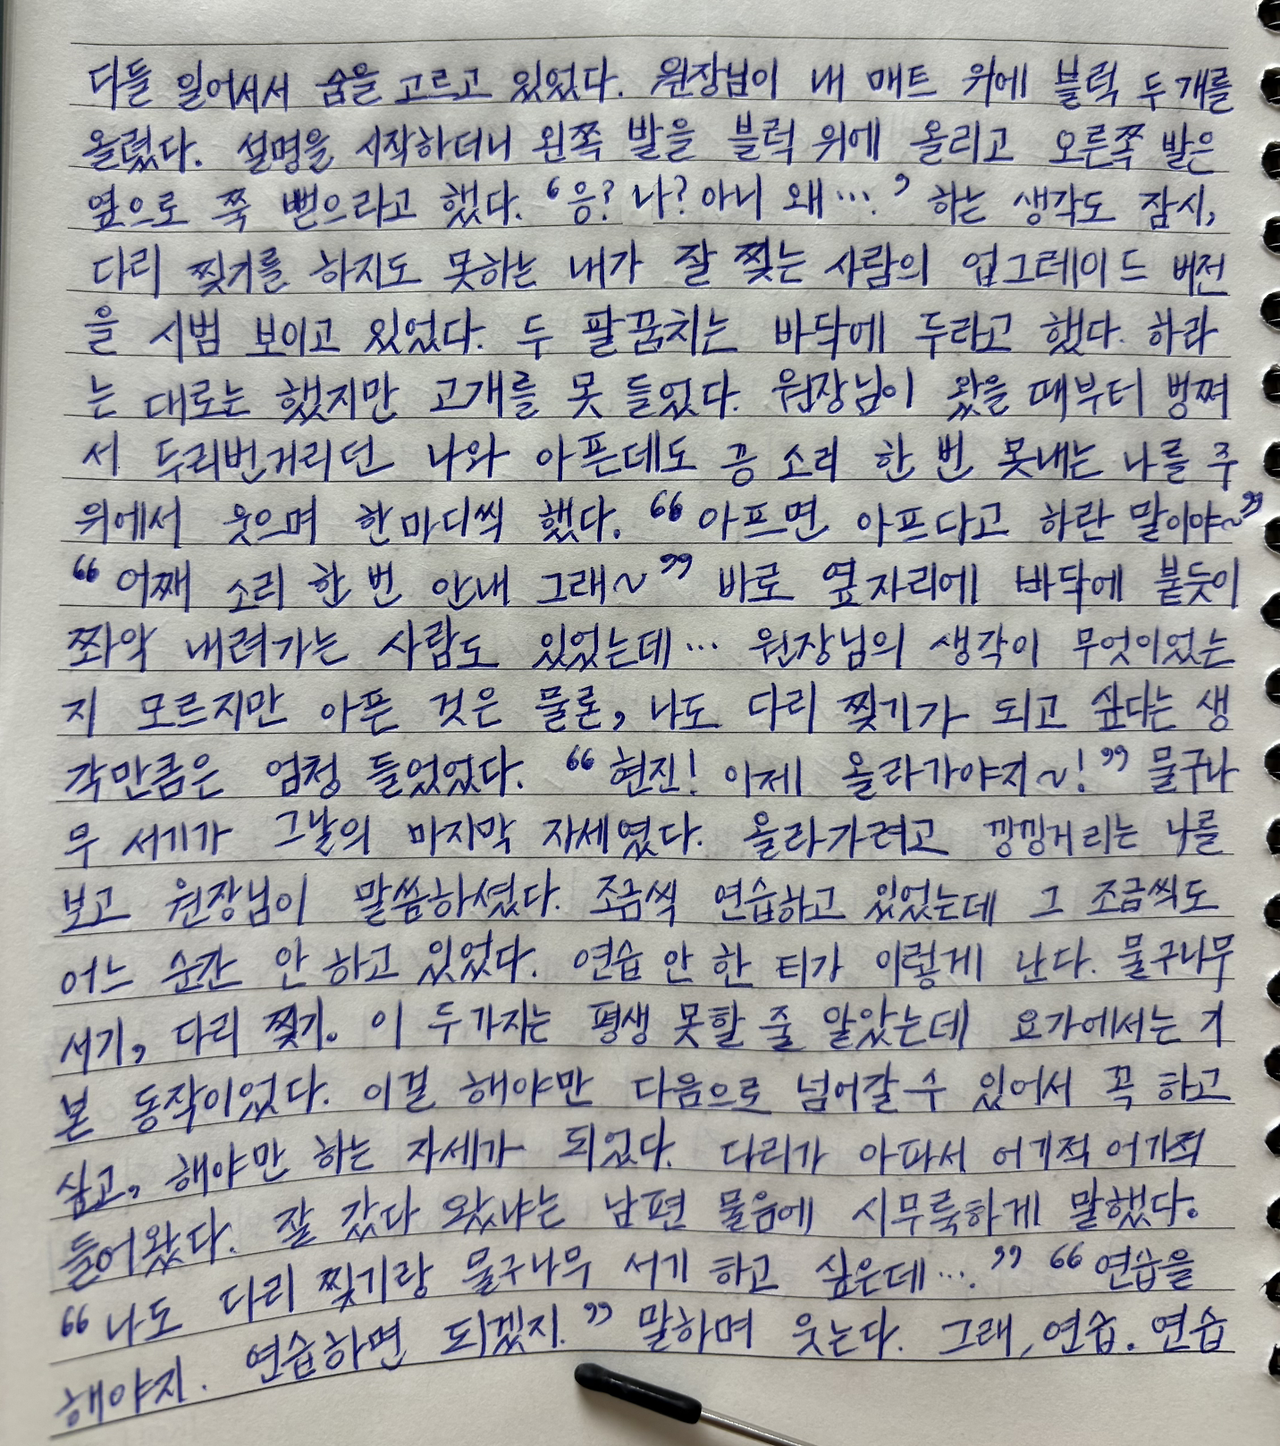 다들 일어서서 숨을 고르고 있었다. 원장님이 내 매트 위에 블럭 두 개를
올렸다. 설명을 시작하더니 왼쪽 발을 블럭 위에 올리고 오른쪽 발은
옆으로 쭉 뻗으라고 했다. ‘응? 나? 아니 왜….’ 하는 생각도 잠시,
다리 찢기를 하지도 못하는 내가 잘 찢는 사람의 업그레이드 버전
을 시범 보이고 있었다. 두 팔꿈치는 바닥에 두라고 했다. 하라
는 대로는 했지만 고개를 못 들었다. 원장님이 왔을 때부터 벙쪄
서 두리번거리던 나와 아픈데도 끙 소리 한 번 못내는 나를 주
위에서 웃으며 한마디씩 했다. “아프면 아프다고 하란 말이야~”
“어째 소리 한 번 안내 그래~” 바로 옆자리에 바닥에 붙듯이
쫘악 내려가는 사람도 있었는데… 원장님의 생각이 무엇이었는
지 모르지만 아픈 것은 물론, 나도 다리 찢기가 되고 싶다는 생
각만큼은 엄청 들었었다. “현진! 이제 올라가야지~!” 물구나
무 서기가 그날의 마지막 자세였다. 올라가려고 낑낑거리는 나를
보고 원장님이 말씀하셨다. 조금씩 연습하고 있었는데 그 조금씩도
어느 순간 안 하고 있었다. 연습 안 한 티가 이렇게 난다. 물구나무
서기, 다리 찢기. 이 두가지는 평생 못할 줄 알았는데 요가에서는 기
본 동작이었다. 이걸 해야만 다음으로 넘어갈 수 있어서 꼭 하고
싶고, 해야만 하는 자세가 되었다. 다리가 아파서 어기적 어기적
들어왔다. 잘 갔다 왔냐는 남편 물음에 시무룩하게 말했다.
“나도 다리 찢기랑 물구나무 서기 하고 싶은데….” “연습을
해야지. 연습하면 되겠지.” 말하며 웃는다. 그래, 연습. 연습